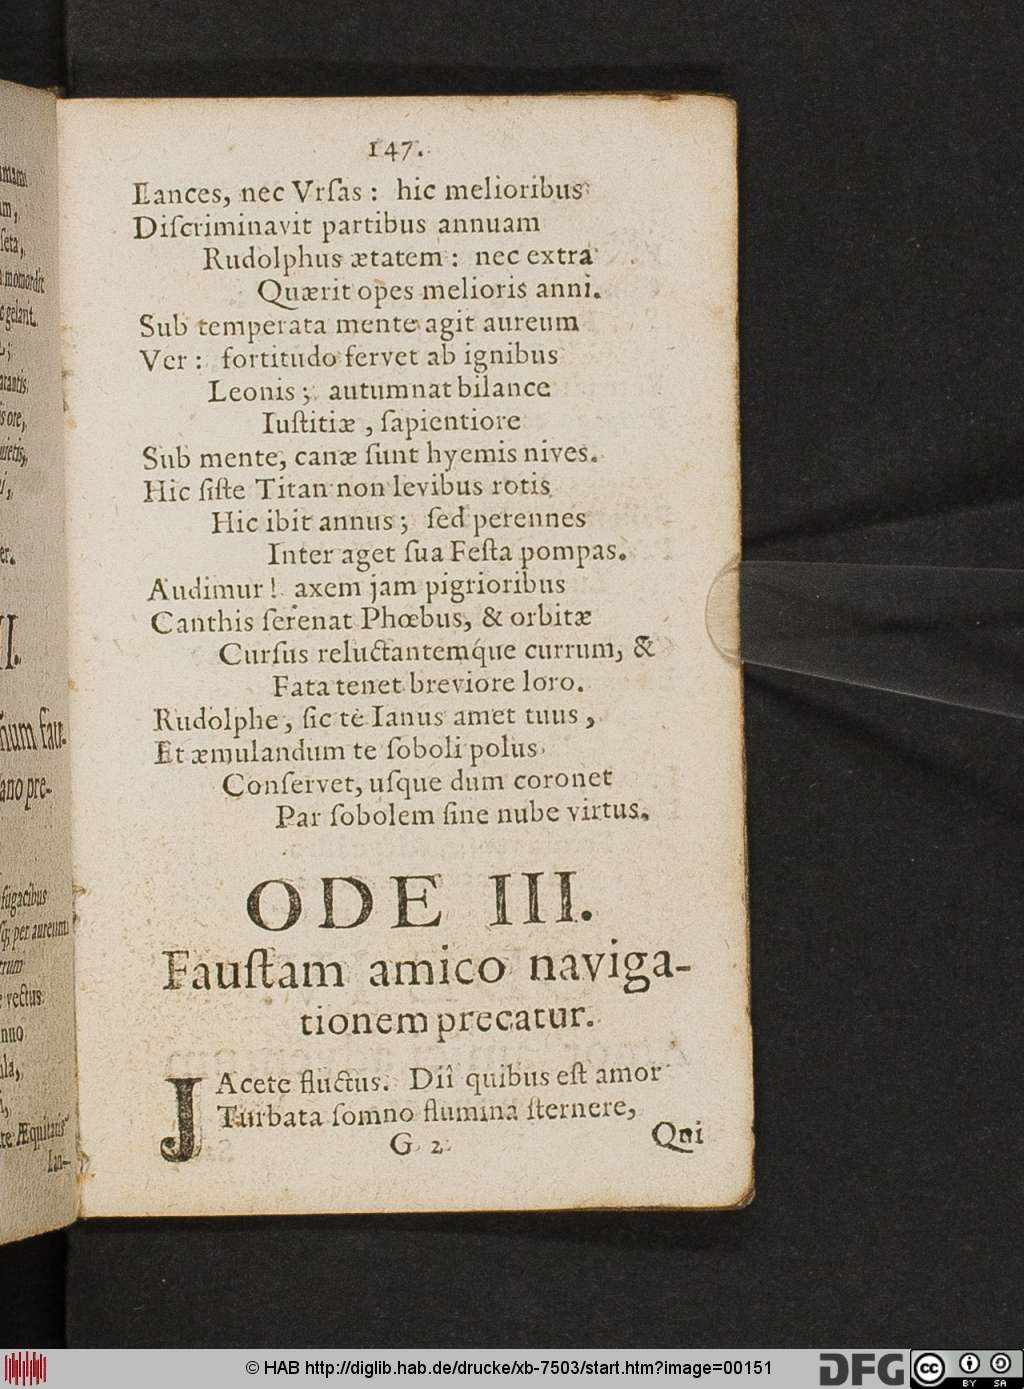 147.
Lances, nec Vrſas : hic melioribus
Diſcriminavit partibus annuam
Rudolphus ætatem : nec extra
Quærit opes melioris anni.
Sub temperata mente agit aureum
Ver : fortitudo fervet ab ignibus
Leonis ; autumnat bilance
Iuſtitiæ , ſapientiore
Sub mente, canæ ſunt hyemis nives.
Hic ſiſte Titan non levibus rotis
Hic ibit annus ; ſed perennes
Inter aget ſua Feſta pompas.
Audimur ! axem jam pigrioribus
Canthis ſerenat Phœbus, & orbitæ
Curſus reluctantemq́ue currum, &
Fata tenet breviore loro.
Rudolphe , ſic te Ianus amet tuus ,
Et æmulandum te ſoboli polus
Conſervet, uſque dum coronet
Par ſobolem ſine nube virtus.
ODE III.
Fauſtam amico naviga-
tionem precatur.
JAcete fluctus. Diî quibus eſt amor
Turbata ſomno flumina ſternere,
G 2
Qui
mam
um,
ſeta,
momordit
gelant.
ratantis
ore,
er.
II.
num fau-
ano pre-
fugacibus
per aureum
vectus
nno
te Æquitatis
Lan-
© HAB http://diglib.hab.de/drucke/xb-7503/start.htm?image=00151
DFG
cc
BY
SA